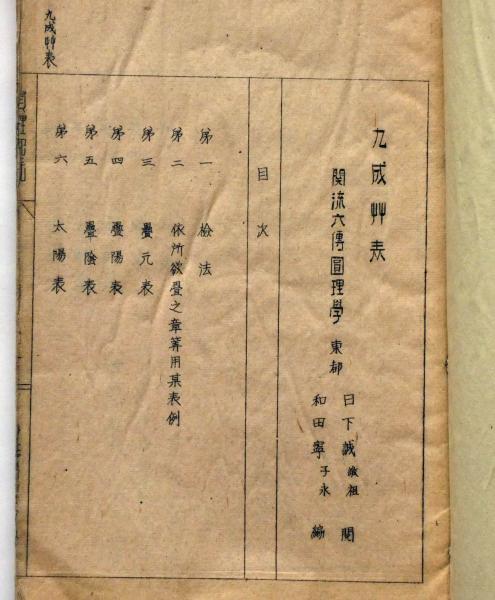 九成艸表
関流六傳圓理學 東都
日下誠敬祖 閲
和田寧子永 編
目次
第一 檢法
第二 依所欲疊之章筭用某表例
第三 疊元表
第四 疊陽表
第五 疊陰表
第六 太陽表
九成艸表